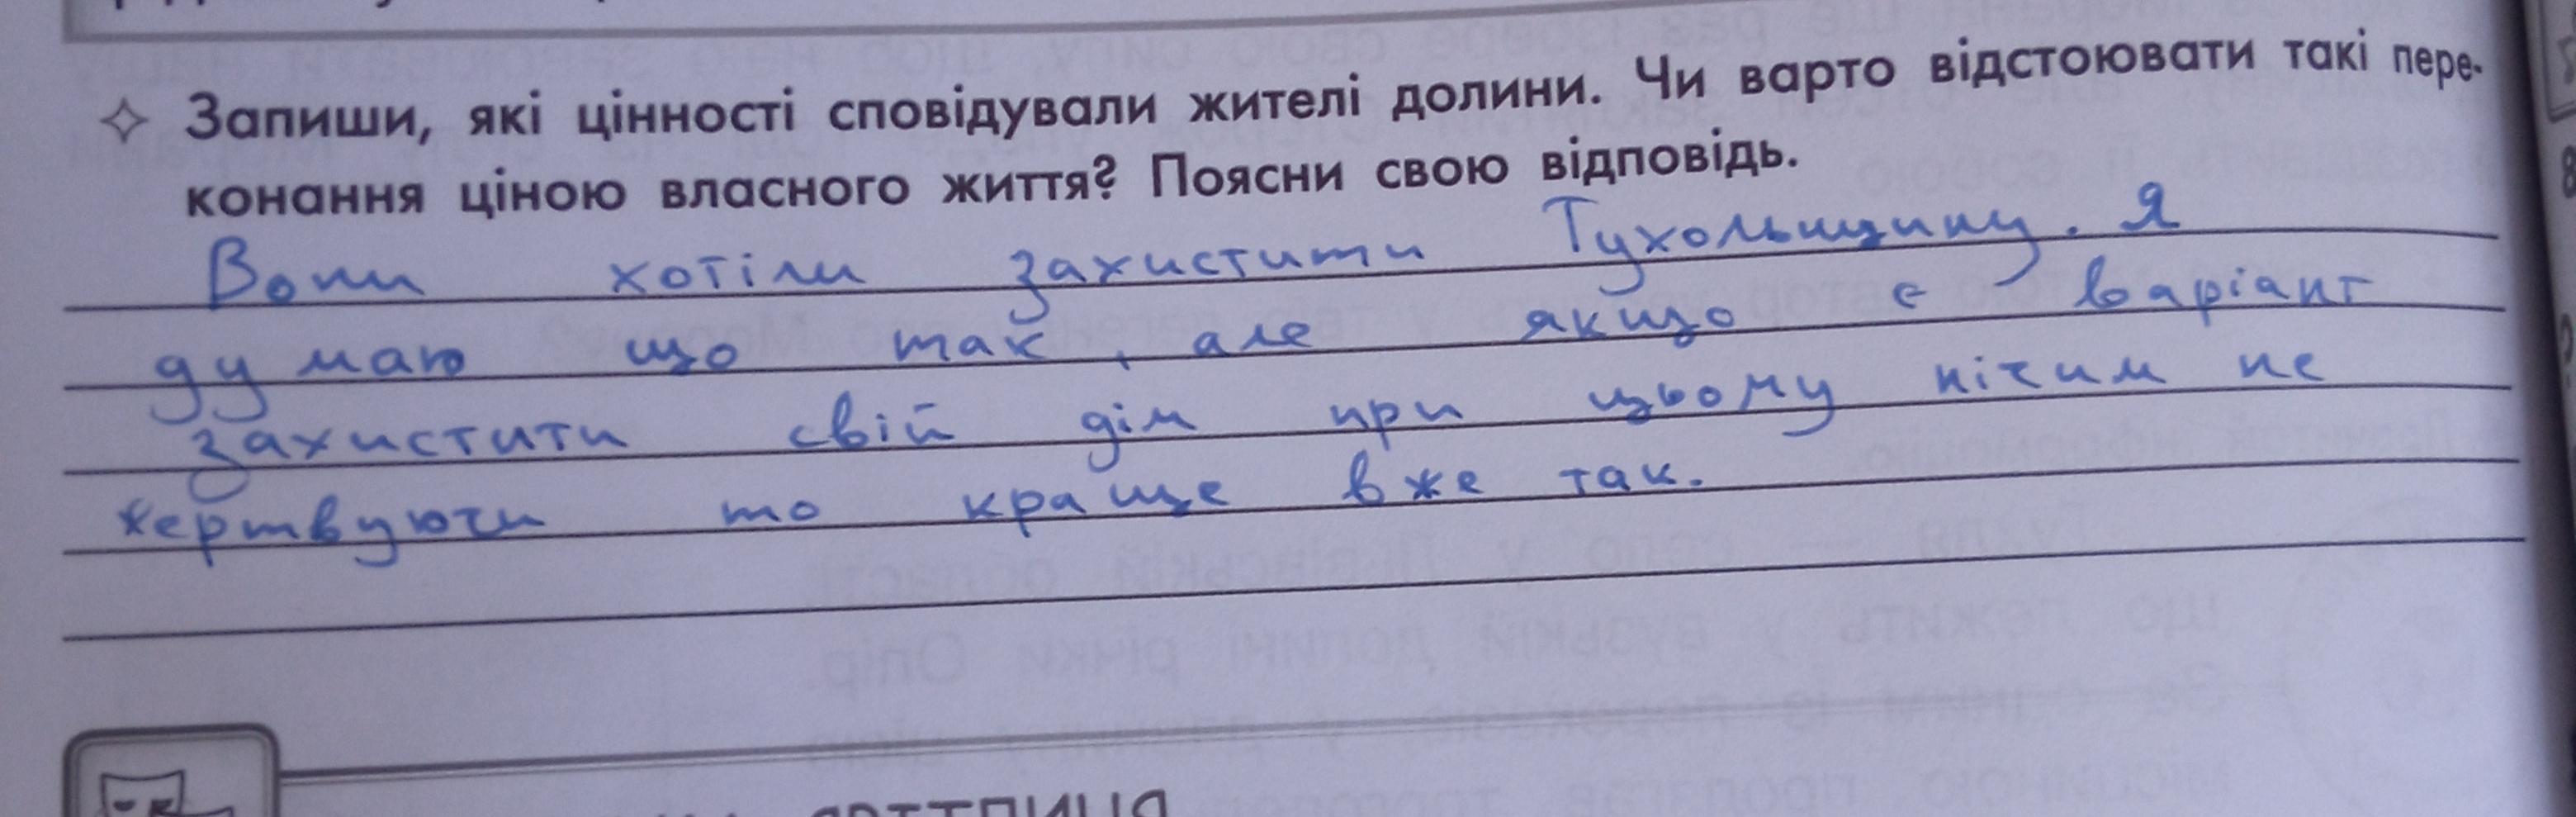 ✧ Запиши, які цінності сповідували жителі долини. Чи варто відстоювати такі пере-
конання ціною власного життя? Поясни свою відповідь.
Вони хотіли захистити Тухольщину. Я
думаю що так, але якщо є варіант
захистити свій дім при цьому нічим не
жертвуючи то краще вже так.